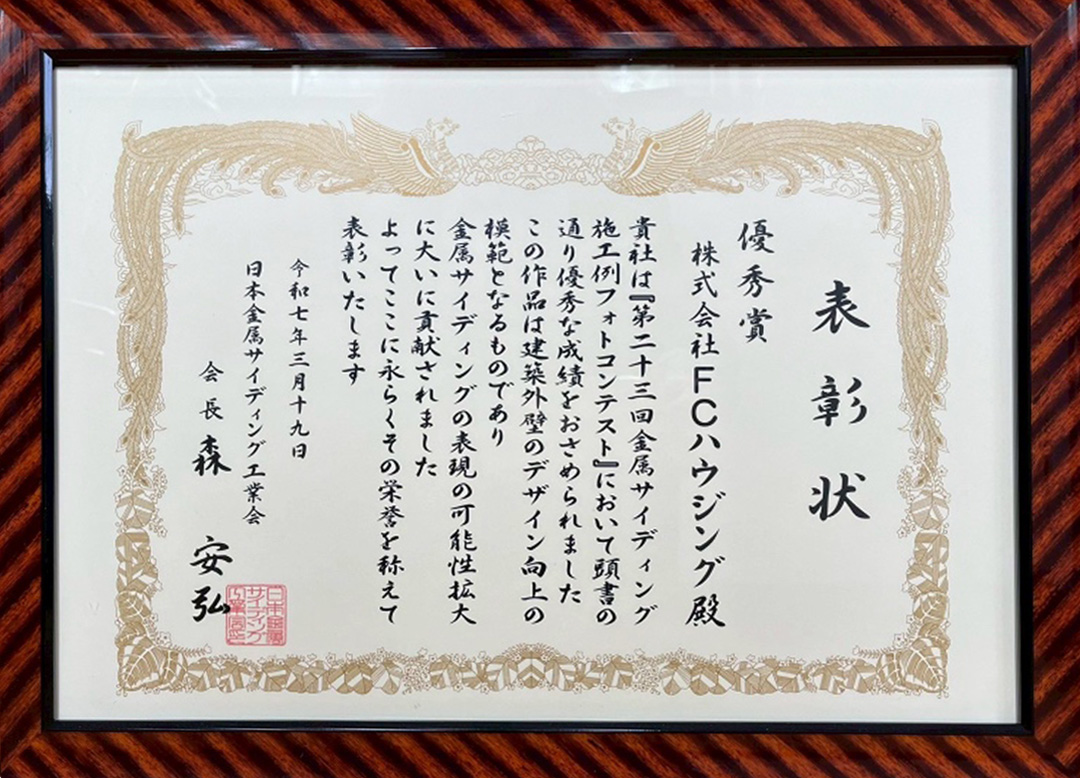 表彰状
優秀賞
株式会社FCハウジング殿
貴社は『第二十三回金属サイディング
施工例フォトコンテスト』において頭書の
通り優秀な成績をおさめられました
この作品は建築外壁のデザイン向上の
模範となるものであり
金属サイディングの表現の可能性拡大
に大いに貢献されました
よってここに永らくその栄誉を称えて
表彰いたします
令和七年三月十九日
日本金属サイディング工業会
会長 森 安弘
日本金属
サイディング
工業会之印